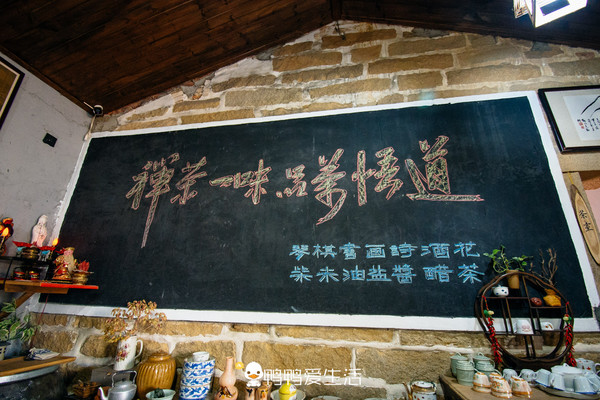 禅茶一味品茗悟道
琴棋書画詩酒花
柴米油盐醬醋茶
茶室
鸭鸭爱生活